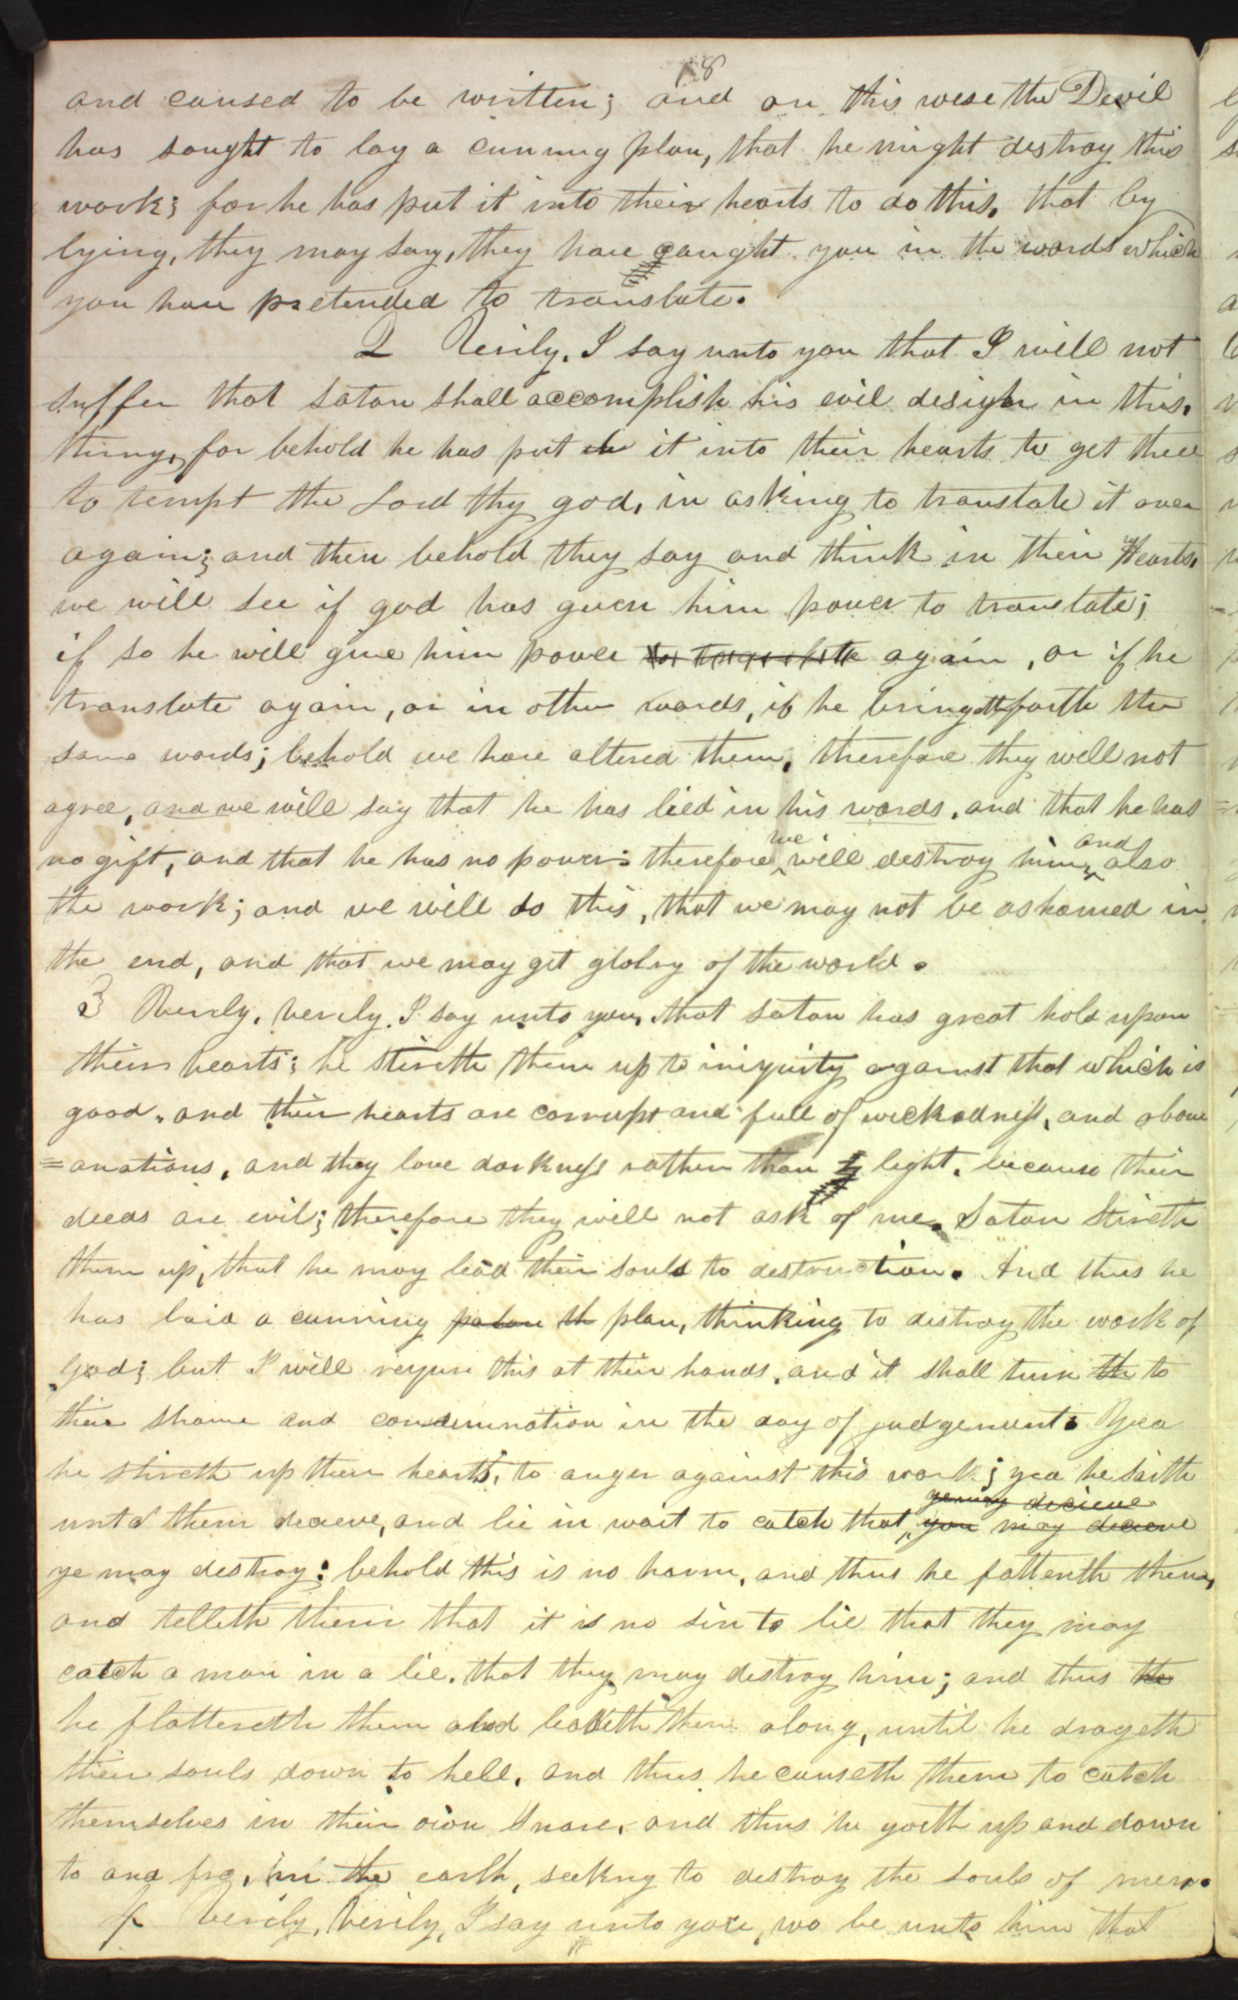 18
and caused to be written; and on this wise the Devil
has sought to lay a cunning plan, that he might destroy this
work; for he has put it into their hearts to do this, that by
lying, they may say, they have caught you in the words which
you have pretended to translate.
2 Verily, I say unto you that I will not
suffer that satan shall accomplish his evil design in this,
thing, for behold he has put it into their hearts to get thee
to tempt the Lord thy god, in asking to translate it over
again; and then behold they say and think in their Hearts,
we will see if god has given him power to translate;
if so he will give him power to translate again, or if he
translate again, or in other words, if he bringeth forth the
same words; behold we have altered them, therefore they will not
agree, and we will say that he has lied in his words, and that he has
no gift, and that he has no power: therefore we will destroy him, and also
the work; and we will do this, that we may not be ashamed in
the end, and that we may get glory of the world.
3 Verily, verily, I say unto you, that satan has great hold upon
their hearts; he stireth them up to iniquity against that which is
good, and their hearts are corrupt and full of wickedness, and abom
=anations, and they love darkness rather than light, because their
deeds are evil; therefore they will not ask of me. Satan Stireth
them up, that he may lead their souls to destruction. And thus he
has laid a cunning plan, thinking to destroy the work of
god; but I will require this at their hands, and it shall turn th to
their shame and condemnation in the day of judgement: Yea
he stireth up their hearts, to anger against this work; yea he saith
unto them deceive, and lie in wait to catch that, you may deceive
ye may decieve
ye may destroy: behold this is no harm, and thus he flatterith them,
and telleth them that it is no sin to lie that they may
catch a man in a lie, that they may destroy him; and thus he
he flattereth them and leadeth them along, until he drageth
their souls down to hell, and thus he causeth them to catch
themselves in their own Snare, and thus he goeth up and down
to and fro, in the earth, seeking to destroy the souls of men.
4 Verily, Verily, I say unto you, wo be unto him that